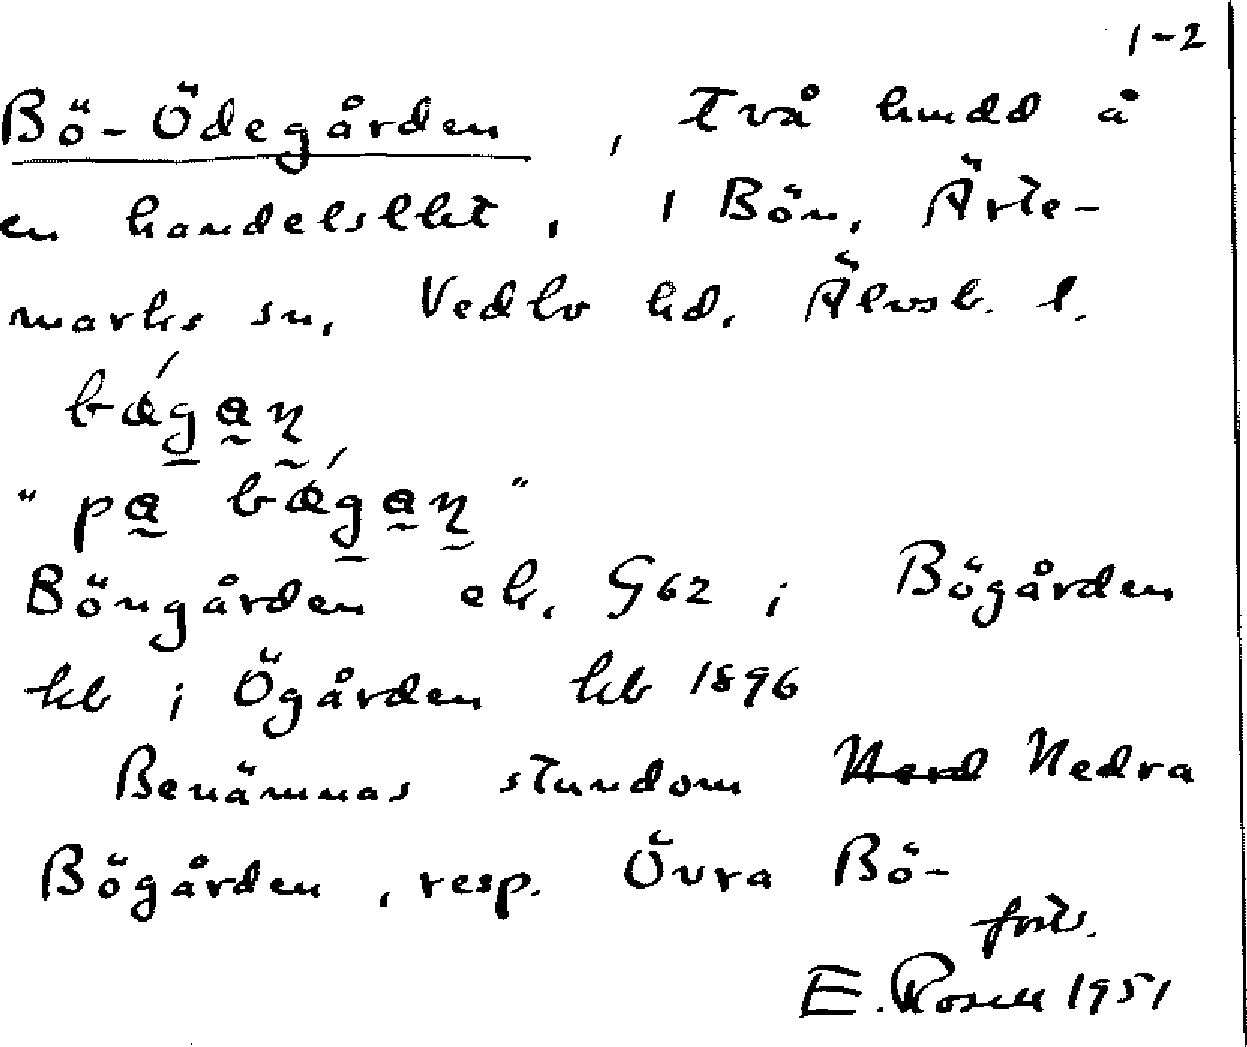 1-2
Bö-Ödegården, två hmdd å
en handelslht, i Bön, Ärte-
marks sn, Vedbo hd. Älvsb. l.
bǽgan̥
"pa bǽgan̥"
Böngården ek. G62 ; Bögården
kb ; Ögården kb 1896
Benämnas stundom Nedra
Bögården, resp. Övra Bö-
forts.
E. Rosell 1951